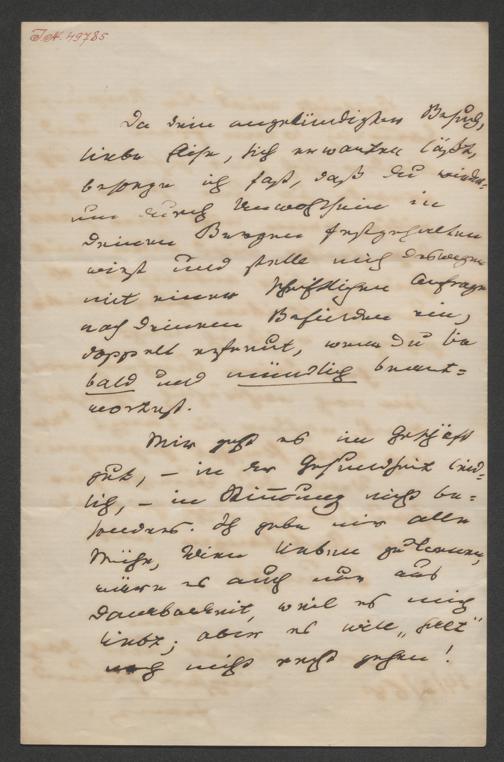 I.N. 49785
Da dein angekündigter Besuch,
liebe Elise, sich erwarten läßt,
besorge ich fast, daß du wieder-
um durch Unwohlsein in
deinen Bergen festgehalten
wirst und stelle mich deswegen
mit einer schriftlichen Anfrage
nach deinem Befinden ein,
doppelt erfreut, wenn du sie
bald und mündlich beant-
wortest.
Mir geht es im Geschäft
gut, – in der Gesundheit leid-
lich, – in Stimmung nicht be-
sonders. Ich gebe mir alle
Mühe, Wien lieben zu lernen,
wäre es auch nur aus
Dankbarkeit, weil es mich
liebt; aber es will „halt"
noch nicht recht gehen!